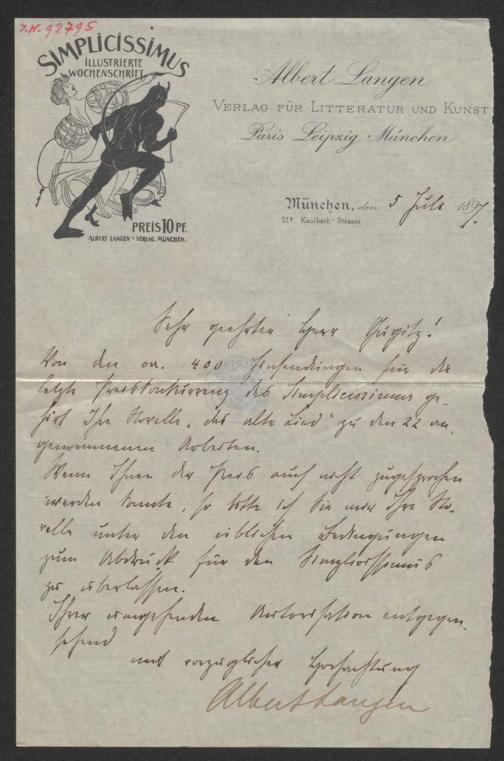 J.N. 92795
SIMPLICISSIMUS
ILLUSTRIERTE
WOCHENSCHRIFT
PREIS 10 PF.
ALBERT LANGEN • VERLAG. MÜNCHEN.
Albert Langen
VERLAG FÜR LITTERATUR UND KUNST
Paris Leipzig München
München, den 5 Juli 1897.
51 Kaulbach-Strasse
Sehr geehrter Herr Gugitz!
Von den ca. 400 Einsendungen für die
letzte Preiskonkurrenz des Simplicissimus ge-
hört Ihre Novelle „das alte Lied" zu den 22 an-
genommenen Arbeiten.
Wenn Ihnen der Preis auch nicht zugesprochen
werden konnte, so bitte ich Sie mir Ihre No-
velle unter den üblichen Bedingungen
zum Abdruck für den Simplicissimus
zu überlassen.
Ihrer umgehenden Autorisation entgegen
sehend
mit vorzüglicher Hochachtung
Albert Langen